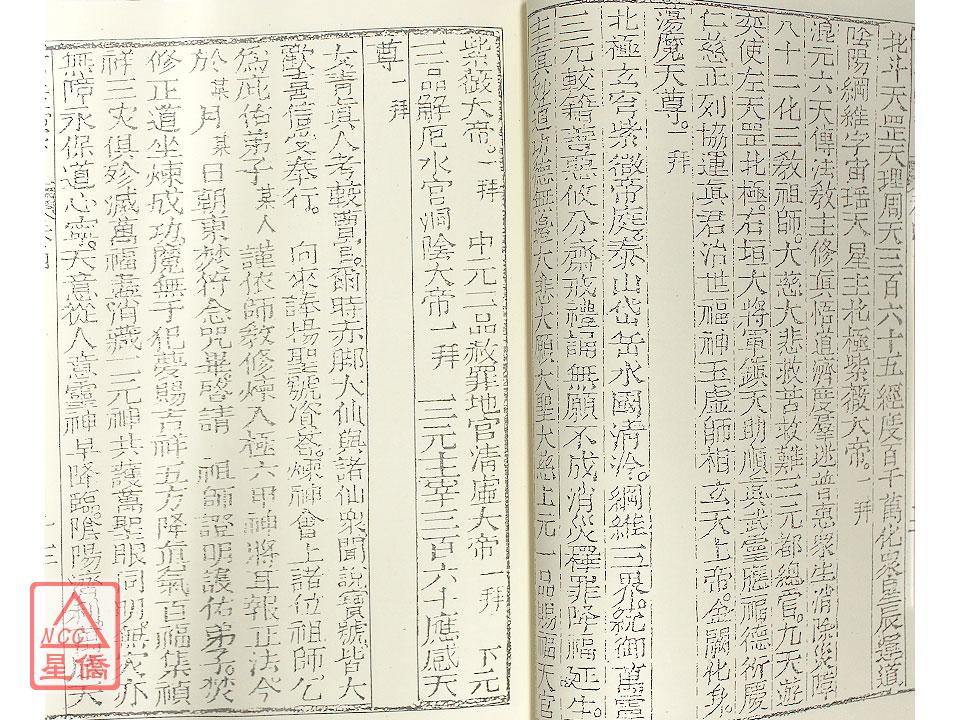 北斗天罡天理周天三百六十五經度百千萬化眾星辰運道
陰陽綱維宇宙瑶天星主北極紫薇大帝。一拜
混元六天傳法教主修真悟道濟度羣迷普惠眾生消除災障
八十二化三教祖師。大慈大悲救苦救難三元都總管。九天遊
奕使左天罡北極。右垣大將軍鎮天助順真武靈應福德衍慶
仁慈正列協運真君治世福神玉虛師相玄天上帝。金闕化身。
蕩魔天尊。一拜
北極玄穹紫微帝庭。泰山岱岳水國清泠。綱維三界。統御萬靈
三元較籍善惡攸分齋戒禮誦無願不成消災釋罪降福延生。
至真妙道功德無量大悲大願大聖大慈上元一品賜福天官
紫薇大帝。一拜　中元二品赦罪地官清虛大帝一拜　下元
三品解厄水官洞陰大帝一拜　三元主宰三百六十應感天
尊一拜
女青真人考較曹官。爾時赤脚大仙與諸仙眾聞說寶號皆大
歡喜信受奉行。　向來諱揚聖號資荅煉神會上諸位祖師。公
為庇佑弟子某人　謹依師教修煉入極六甲神將耳報正法今
於某月某日朝東焚符念咒畢啓請　祖師證明護佑弟子。焚
修正道坐煉成功魔無于犯夢賜吉祥五方降真氣百福集禎
祥三灾俱殄滅萬福盡消藏二元神共護萬聖眼同明無灾亦
無障永保道心寧。天意從人意靈神早降臨。陰陽濟
天
NCC
星僑